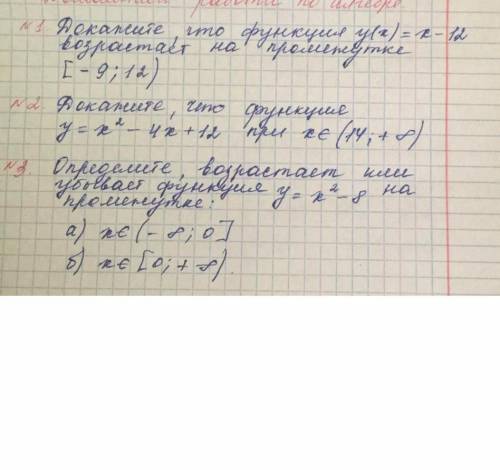 работа по алгебре.
№1. Докажите, что функция y(x) = x - 12
возрастает на промежутке
[- 9; 12)
№2. Докажите, что функция
y = x² - 4x + 12 при x ∈ (14; + 8)
№3. Определите, возрастает или
убывает функция y = x² - 8 на
промежутке:
а) x ∈ (- 8; 0]
б) x ∈ [0; + 8).